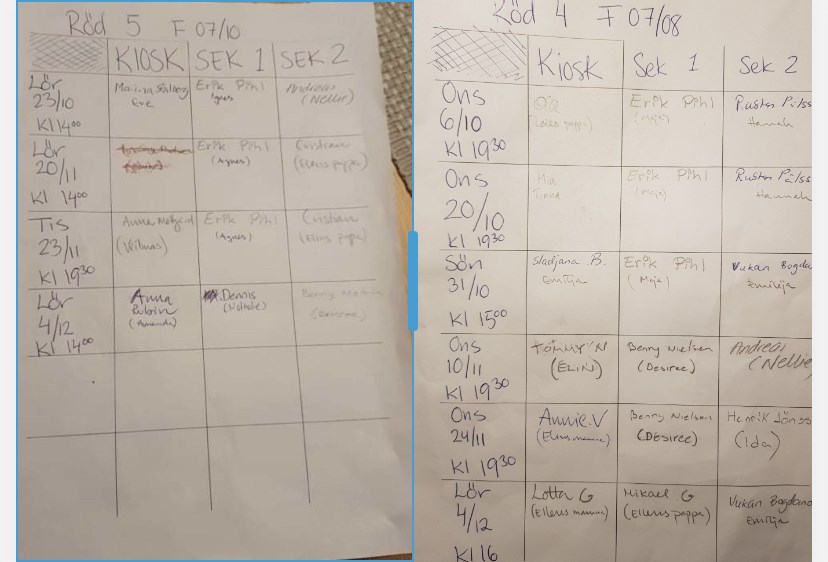 Röd 5 F 07/10
KIOSK SEK 1 SEK 2
Lör
23/10
Kl 14⁰⁰
Erik Pihl
Agnes
Andreas
(Nellie)
Eve
Lör
20/11
Kl 14⁰⁰
Erik Pihl
(Agnes)
(Ellens pappa)
Tis
23/11
Kl 19³⁰
Anna
(Wilmas)
Erik Pihl
(Agnes)
(Ellens pappa)
Lör
4/12
Kl 14⁰⁰
Anna
(Amanda)
Dennis
Benny
Röd 4 F 07/08
Kiosk Sek 1 Sek 2
Ons
6/10
Kl 19³⁰
Erik Pihl
(Maja)
Hannah
Ons
20/10
Kl 19³⁰
Mia
Erik Pihl
(Maja)
Hannah
Sön
31/10
Kl 15⁰⁰
Sladjana B.
Emilija
Erik Pihl
(Maja)
Vukan Bogda
Emilija
Ons
10/11
Kl 19³⁰
TOMMY N
(ELIN)
Benny Nielsen
(Desiree)
Andreas
(Nellie
Ons
24/11
Kl 19³⁰
Annie.V
(Ellens mamma)
Benny Nielsen
(DEsiree)
Henrik Jönss
(Ida)
Lör
4/12
Kl 16
Lotta G
(Ellens mamma)
Mikael G
(Ellens pappa)
Vukan Bogdano
Emilija